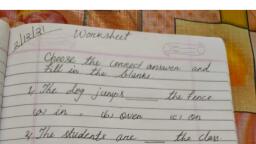 2/12/21
Worksheet
Choose the correct answer and
fill in the blanks.
1) The dog jumps ____ the fence
(a) in (b) over (c) on
2) The students are ____ the class.